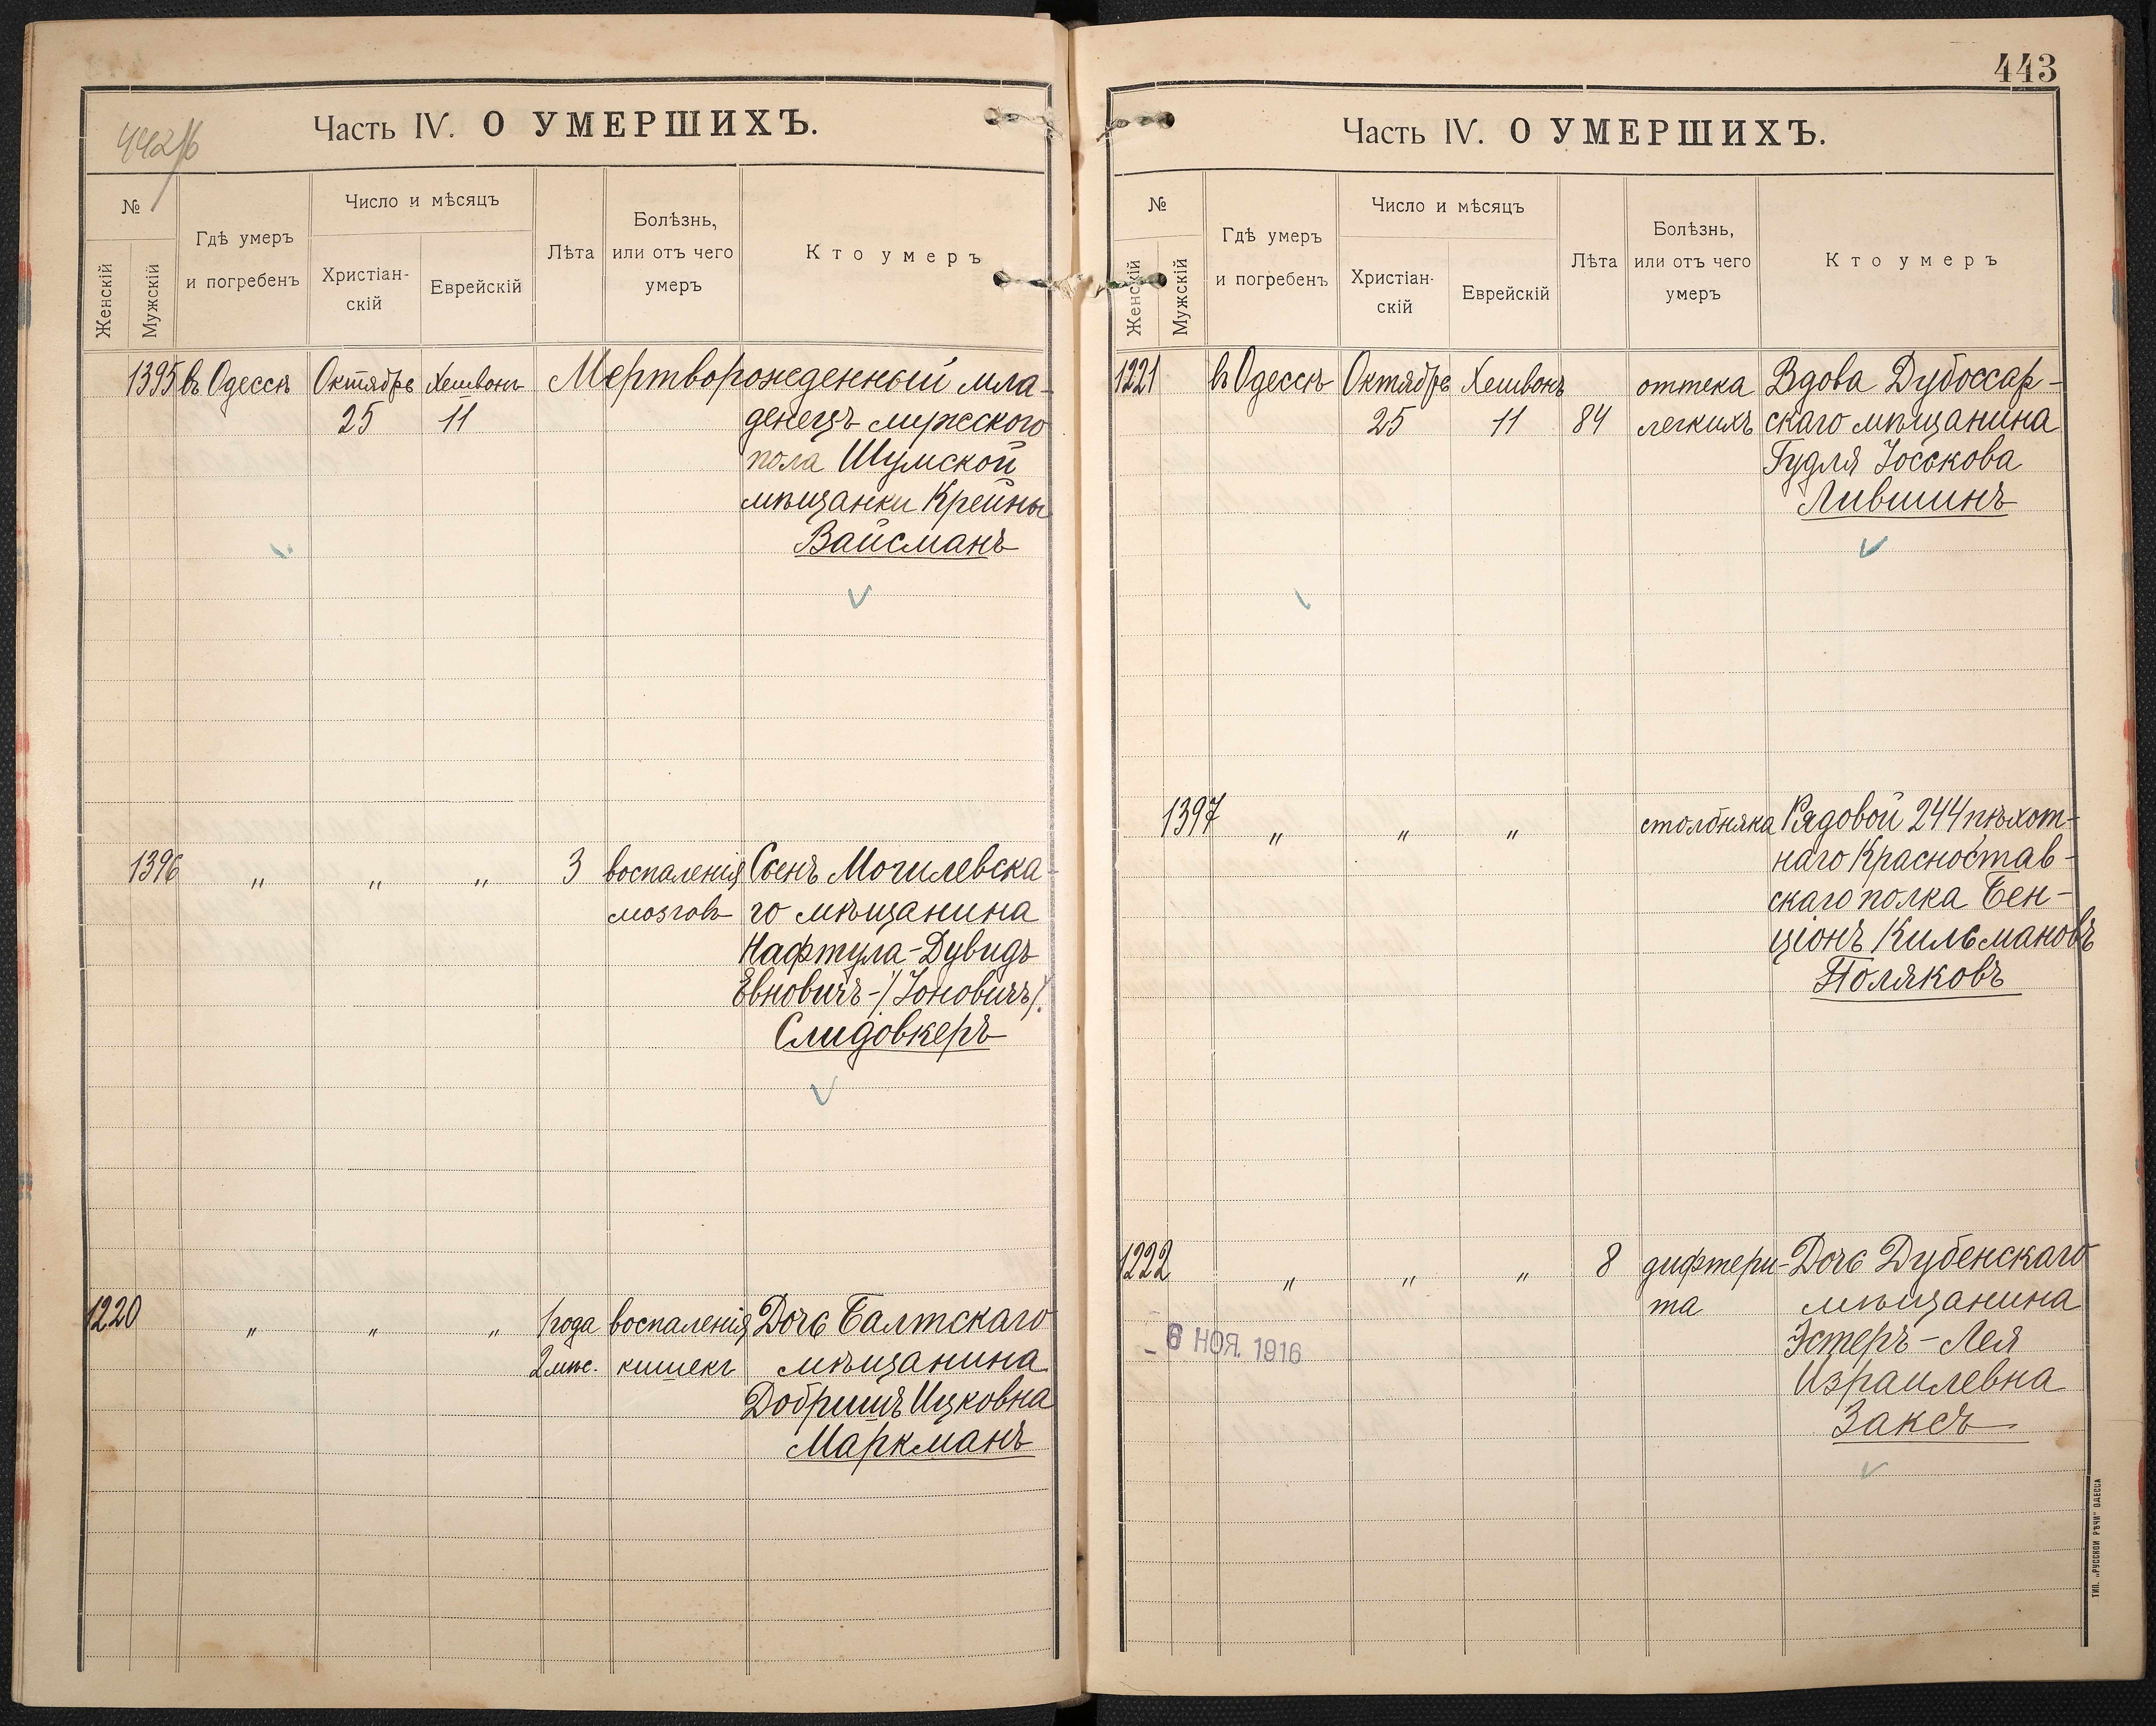 442/б
Часть IV. О УМЕРШИХЪ.
№
Женскій
Мужскій
Гдѣ умеръ
и погребенъ
Число и мѣсяцъ
Христіан-
скій
Еврейскій
Лѣта
Болѣзнь,
или отъ чего
умеръ
Кто умеръ
1395 въ Одессѣ Октябрь Хешвонъ Мертворожденный мла-
25 11 денецъ мужского
пола Шумской
мѣщанки Крейны
Вайсманъ
1396 " " " 3 воспаленія Сынъ Могилевска-
мозговъ го мѣщанина
Нафтула-Дувидъ
Евновичъ-/Іоновичъ/.
Слидовкеръ
1220 " " " 1 года воспаленія Дочь Балтскаго
2 мѣс. кишекъ мѣщанина
Добришъ Ицковна
Маркманъ
443
Часть IV. О УМЕРШИХЪ.
№
Женскій
Мужскій
Гдѣ умеръ
и погребенъ
Число и мѣсяцъ
Христіан-
скій
Еврейскій
Лѣта
Болѣзнь,
или отъ чего
умеръ
Кто умеръ
1221 въ Одессѣ Октябрь Хешвонъ оттека Вдова Дубоссар-
25 11 84 легкихъ скаго мѣщанина
Гудля Іоськова
Лившинъ
1397 " " " столбняка Рядовой 244 пѣхот-
наго Красностав-
скаго полка Бен-
ціонъ Кильмановъ
Поляковъ
1222 " " " 8 дифтери- Дочь Дубенскаго
та мѣщанина
- 6 НОЯ. 1916 Эстеръ-Лея
Израилевна
Заксъ
ТИП. „РУССКОЙ РѢЧИ" ОДЕССА